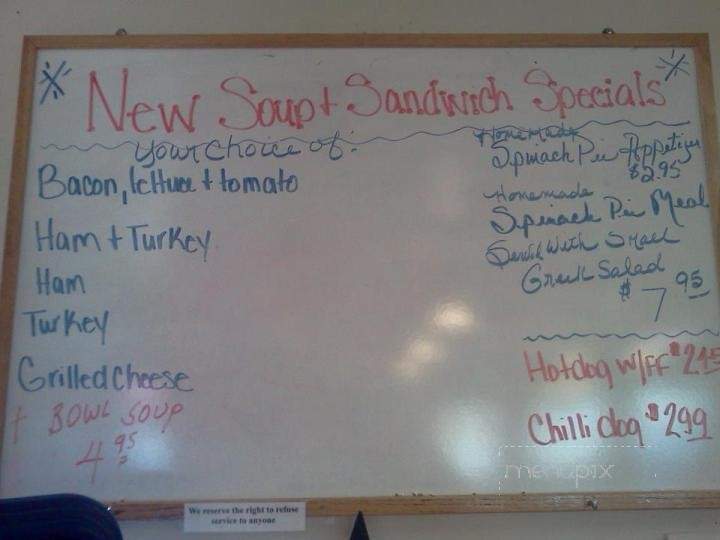 New Soup + Sandwich Specials
Your choice of:
Bacon, lettuce + tomato
Ham + Turkey
Ham
Turkey
Grilled Cheese
+ BOWL SOUP
4 95
Homemade
Spinach Pie Appetizer
$2.95
Homemade
Spinach Pie Meal
Served With Small
Greek Salad
$7 95
Hotdog w/FF $2.45
Chilli dog $2.99
menupix
We reserve the right to refuse
service to anyone